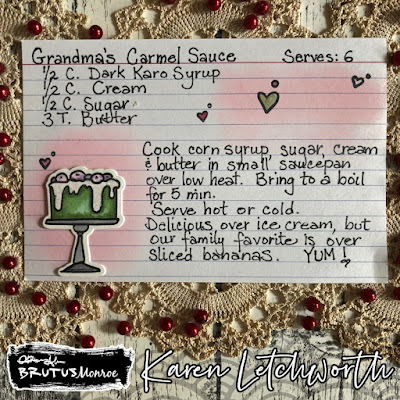 Grandma's Carmel Sauce Serves: 6
1/2 C. Dark Karo Syrup
1/2 C. Cream
1/2 C. Sugar
3 T. Butter
Cook corn syrup, sugar, cream
& butter in small saucepan
over low heat. Bring to a boil
for 5 min.
Serve hot or cold.
Delicious over ice cream, but
our family favorite is over
sliced bananas. YUM!
BRUTUS Monroe
Karen Letchworth